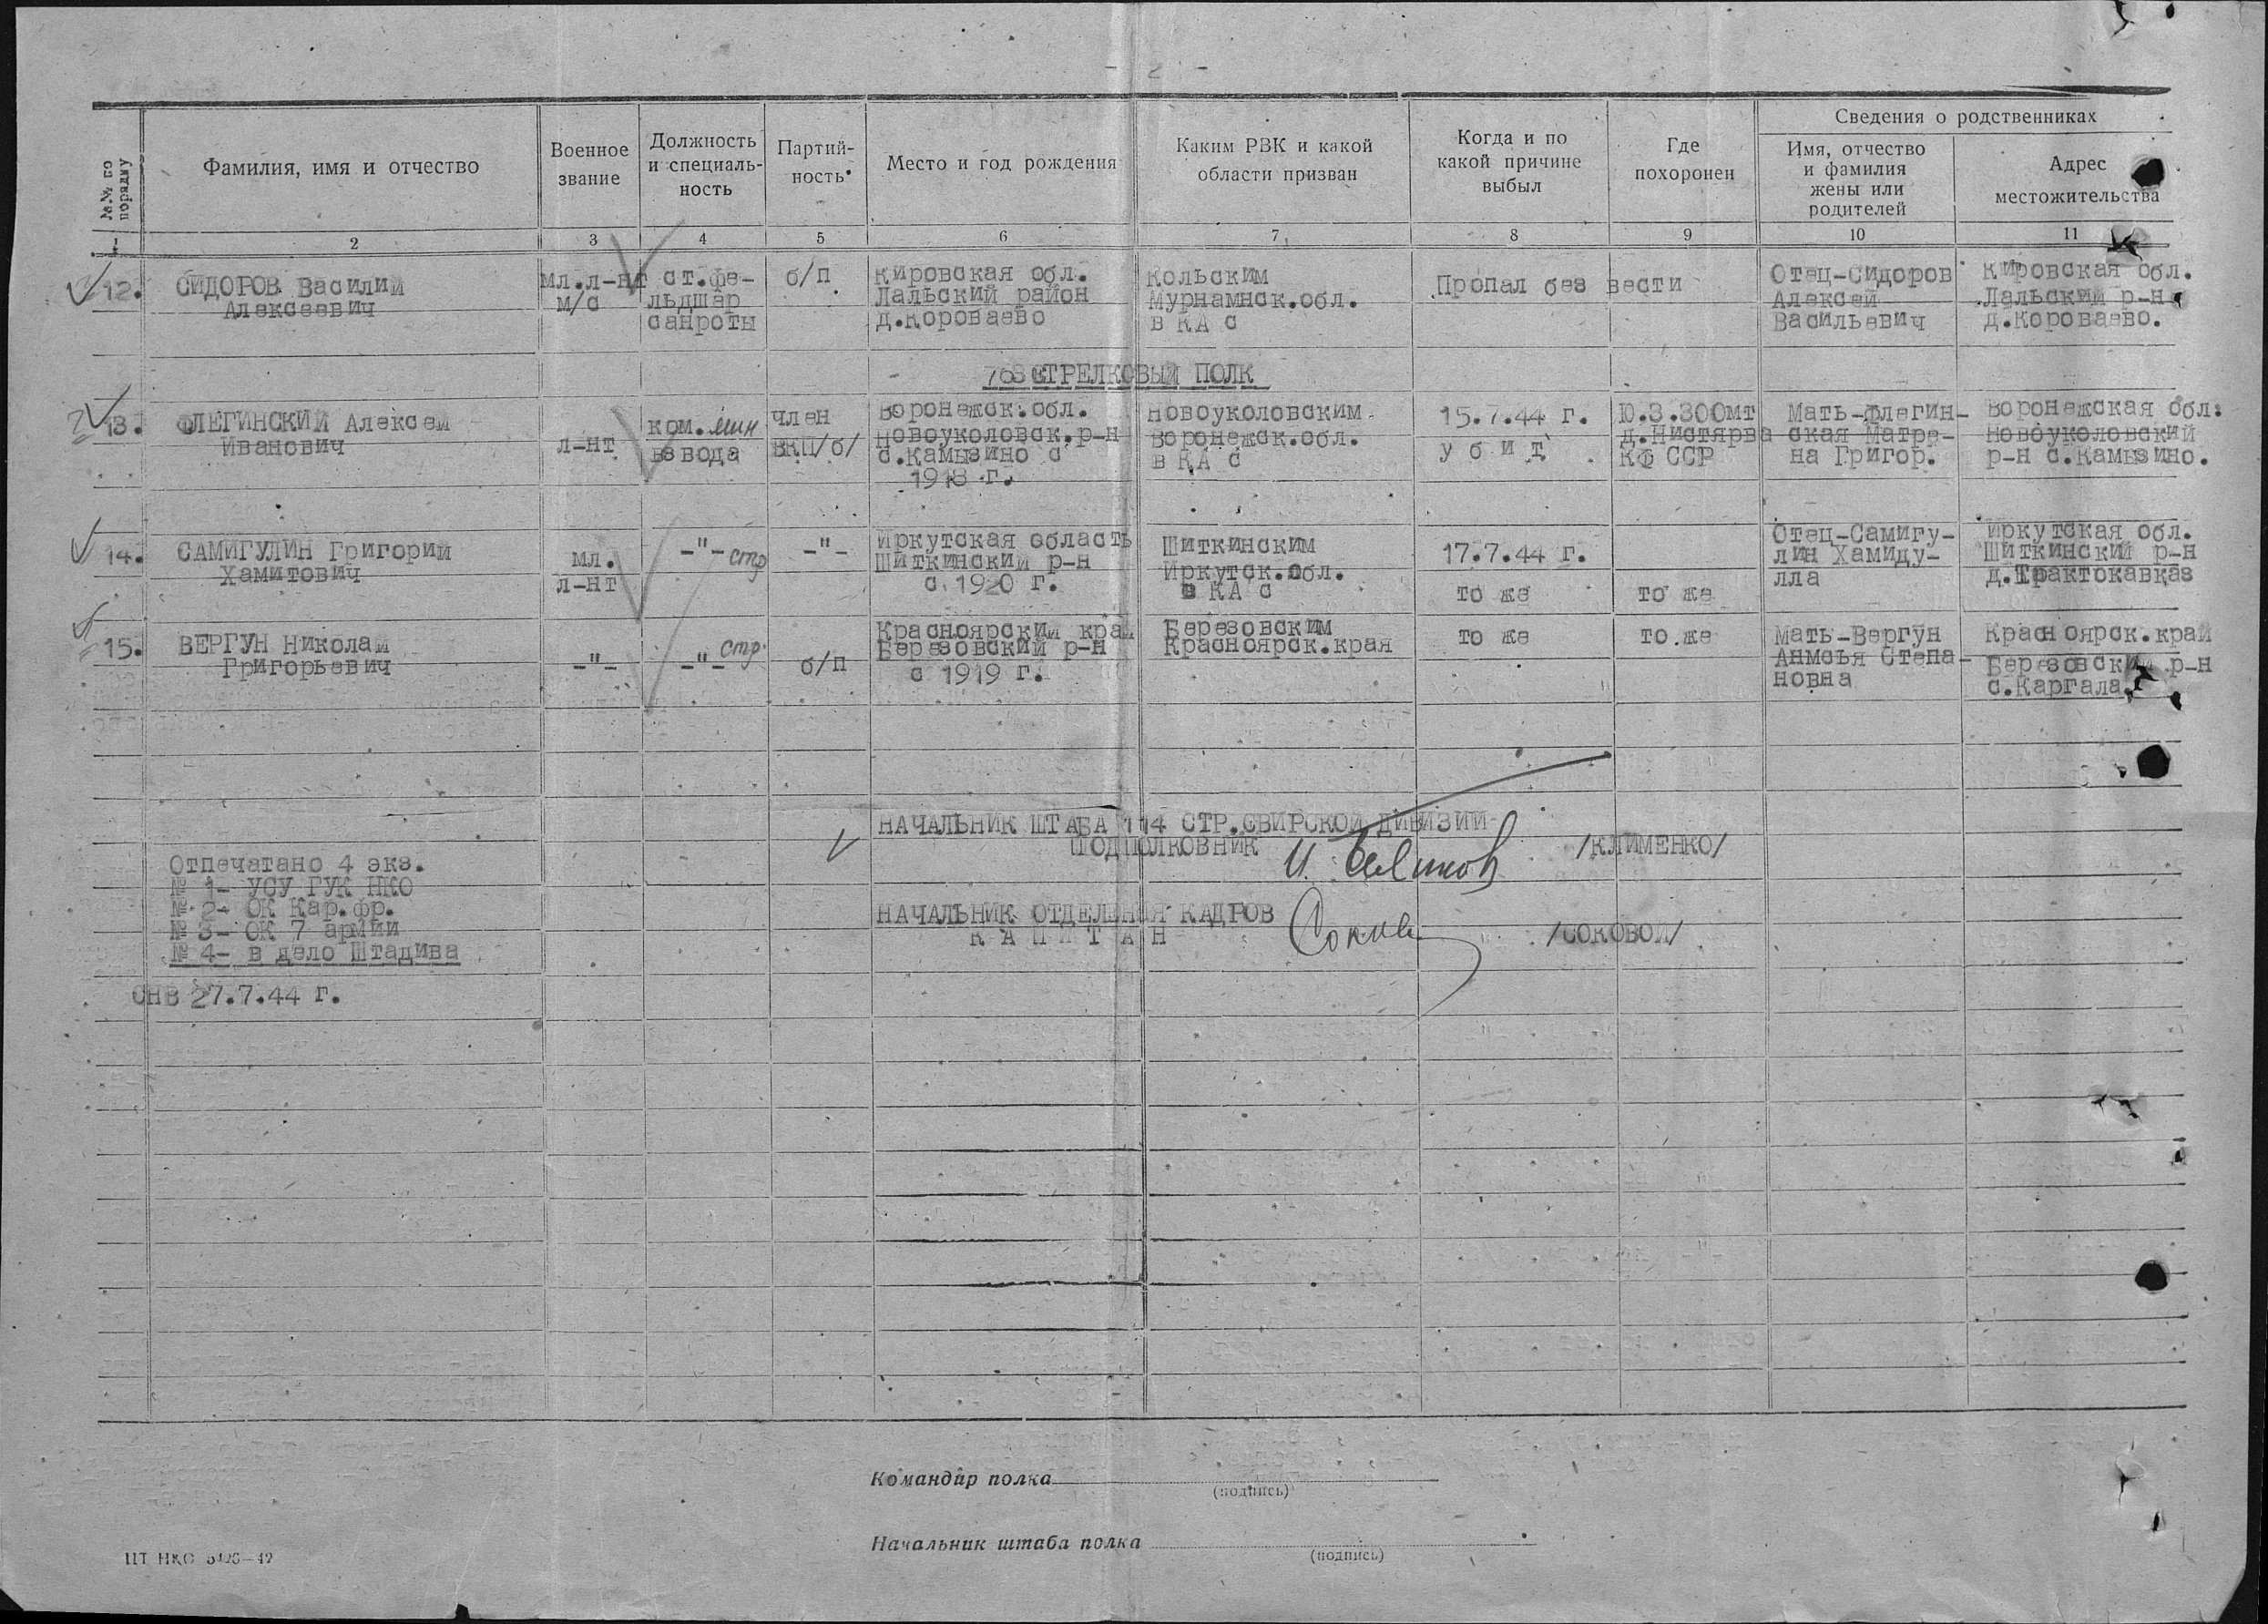 - 2 -
№№ по порядку
Фамилия, имя и отчество
Военное
звание
Должность
и специаль-
ность
Партий-
ность
Место и год рождения
Каким РВК и какой
области призван
Когда и по
какой причине
выбыл
Где
похоронен
Сведения о родственниках
Имя, отчество
и фамилия
жены или
родителей
Адрес
местожительства
1 2 3 4 5 6 7 8 9 10 11
12.
СИДОРОВ Василий
Алексеевич
мл.л-нт
м/с
ст.фе-
льдшер
санроты
б/п
Кировская обл.
Лальский район
д.Короваево
Кольским
Мурнамнск.обл.
в КА с
Пропал без вести
Отец-Сидоров
Алексей
Васильевич
Кировская обл.
Лальский р-н
д.Короваево.
763 СТРЕЛКОВЫЙ ПОЛК
13.
ФЛЕГИНСКИЙ Алексей
Иванович
л-нт
ком. мин
взвода
член
ВКП/б/
Воронежск.обл.
Новоуколовск.р-н
с.Камызино с
1918 г.
Новоуколовским
Воронежск.обл.
в КА с
15.7.44 г.
у б и т
Ю.З.300мт
д.Нистярва
КФ ССР
Мать-Флегин-
ская Матре-
на Григор.
Воронежская обл.
Новоуколовский
р-н с.Камызино.
14.
САМИГУЛИН Григорий
Хамитович
мл.
л-нт
-"- стр
-"-
Иркутская область
Шиткинский р-н
с 1920 г.
Шиткинским
Иркутск.обл.
в КА с
17.7.44 г.
то же
то же
Отец-Самигу-
лин Хамиду-
лла
Иркутская обл.
Шиткинский р-н
д.Трактокавказ
15.
ВЕРГУН Николай
Григорьевич
-"-
-"- стр.
б/п
Красноярский край
Березовский р-н
с 1919 г.
Березовским
Красноярск.края
то же
то же
Мать-Вергун
Анмсья Степа-
новна
Красноярск.край
Березовский р-н
с.Каргала.
НАЧАЛЬНИК ШТАБА 114 СТР.СВИРСКОЙ ДИВИЗИИ
ПОДПОЛКОВНИК
/КЛИМЕНКО/
НАЧАЛЬНИК ОТДЕЛЕНИЯ КАДРОВ
К А П И Т А Н
/СОКОВОЙ/
Отпечатано 4 экз.
№ 1- УСУ ГУК НКО
№ 2- ОК Кар.фр.
№ 3- ОК 7 армии
№ 4- в дело Штадива
СНВ 27.7.44 г.
Командир полка
(подпись)
Начальник штаба полка
(подпись)